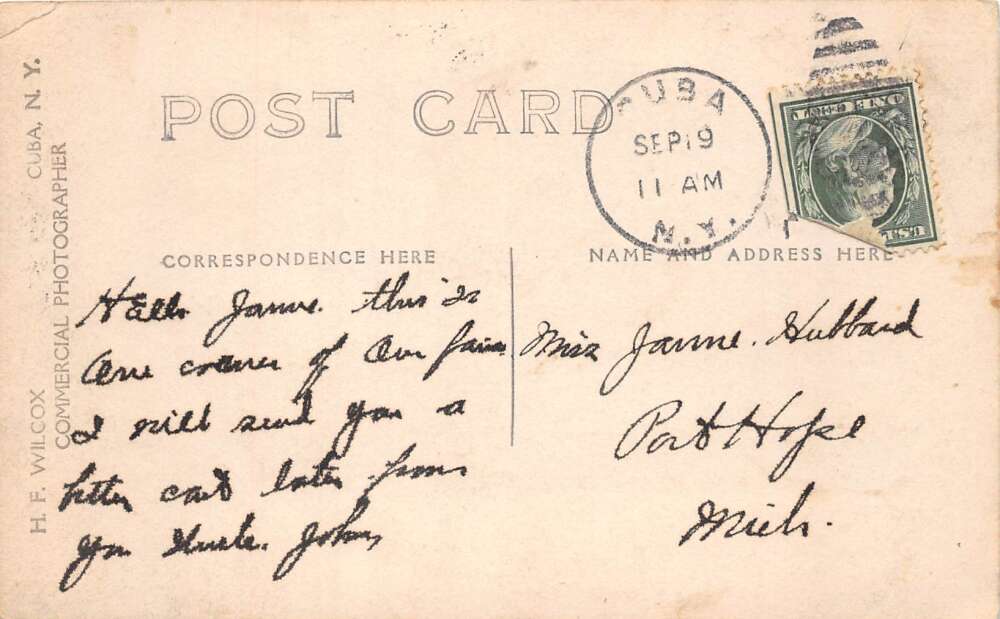 H. F. WILCOX CUBA, N. Y.
COMMERCIAL PHOTOGRAPHER
POST CARD
CUBA
SEP 19
11 AM
N.Y.
ONE CENT
CORRESPONDENCE HERE
NAME AND ADDRESS HERE
Hello Janne. this is
One corner of Our fair
I will send you a
better card later from
you Uncle. John
Miss Janne. Hubbard
Port Hope
Mich.